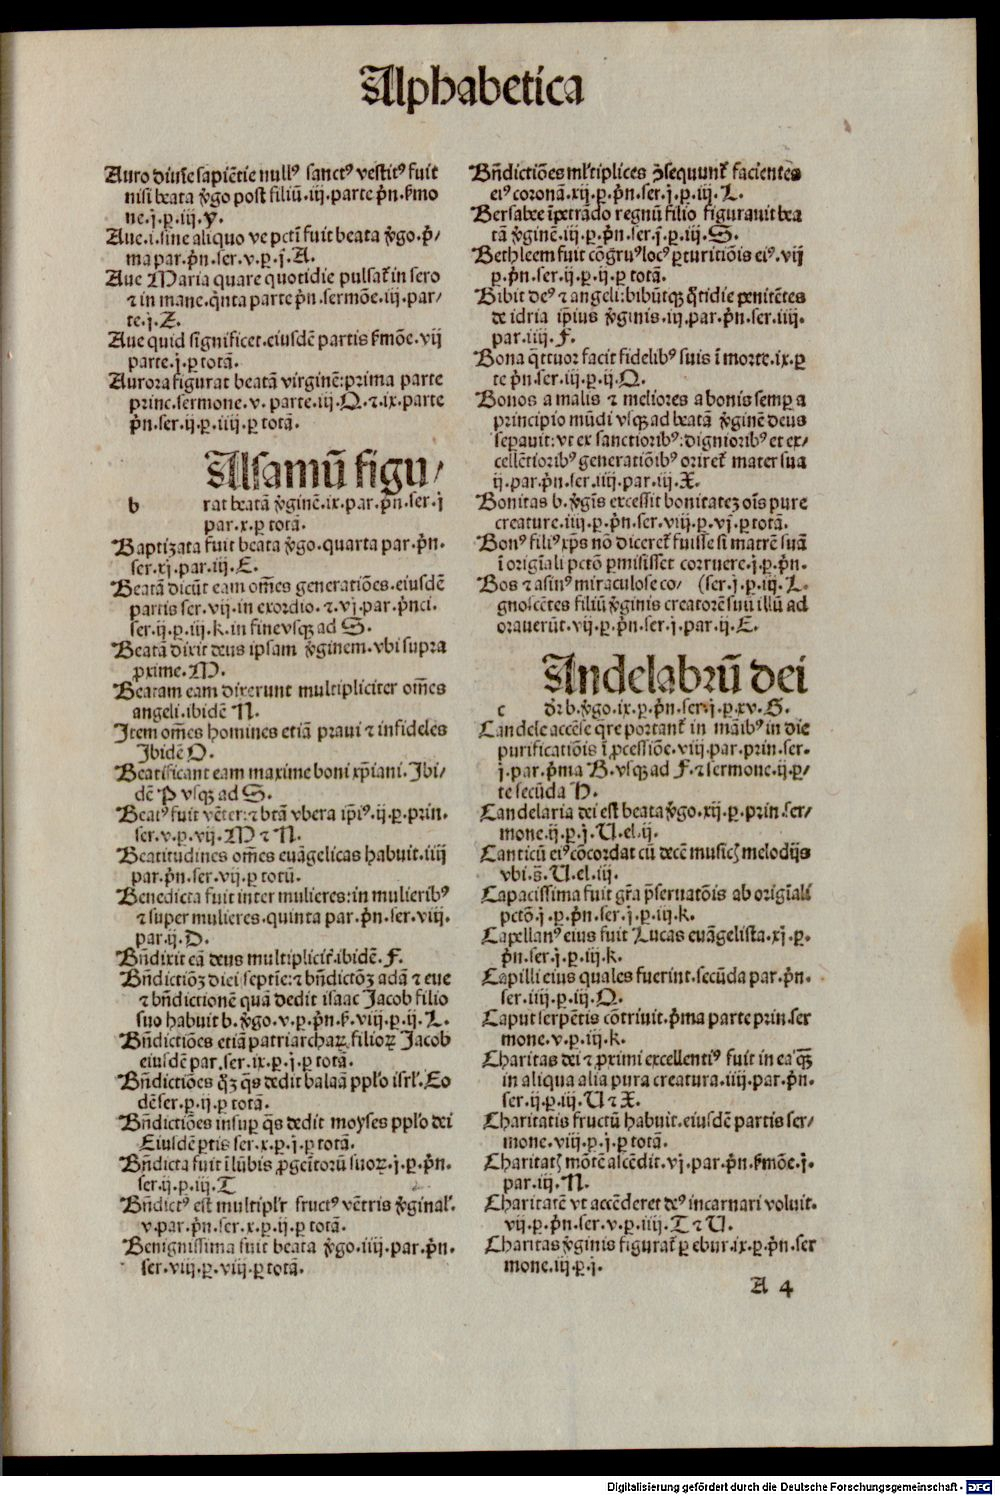 Alphabetica
Auro diuīe sapiētie nullꝰ sanctꝰ vestitꝰ fuit
nisi beata v̓go post filiū.iij.parte p̓n.ẜmo
ne.j.p.iij.y.
Aue.i.sine aliquo ve pctī fuit beata v̓go.p̓/
ma par.p̓n.ser.v.p.j.A.
Aue Maria quare quotidie pulsat̉ in sero
⁊ in mane.q̇nta parte p̓n.sermōe.iij.par/
te.j.Z.
Aue quid significet.eiusdē partis ẜmōe.vij
parte.j.ꝑ totā.
Aurora figurat beatā virginē:prima parte
princ.sermone.v.parte.iij.Q.⁊.ix.parte
p̓n.ser.ij.p.iiij.ꝑ totā.
Alsamū figu/
b rat beatā v̓ginē.ix.par.p̓n.ser.j
par.x.ꝑ totā.
Baptizata fuit beata v̓go.quarta par.p̓n.
ser.xj.par.iij.E.
Beatā dicūt eam om̄es generatiōes.eiusdē
partis ser.vij.in exordio.⁊.vj.par.p̓nci.
ser.ij.p.iij.k.in fine vsqꝫ ad S.
Beatā dixit deus ipsam v̓ginem.vbi supra
ꝓxime.M.
Beatam eam dixerunt multipliciter om̄es
angeli.ibidē N.
Item om̄es homines etiā praui ⁊ infideles
Ibidē O.
Beatificant eam maxime boni xp̄iani.Ibi/
dē P vsqꝫ ad S.
Beatꝰ fuit vēter:⁊ btā vbera ip̄iꝰ.ij.p.prin.
ser.v.p.vij.M ⁊ N.
Beatitudines om̄es euāgelicas habuit.iiij
par.p̓n.ser.vij.ꝑ totū.
Benedicta fuit inter mulieres:in mulieribꝰ
⁊ super mulieres.quinta par.p̓n.ser.viij.
par.ij.D.
Bn̄dixit eā deus multiplicit̉.ibidē.F.
Bn̄dictiōꝫ diei septīe:⁊ bn̄dictōꝫ adā ⁊ eue
⁊ bn̄dictionē quā dedit isaac Jacob filio
suo habuit b.v̓go.v.p.p̓n.ẜ.viij.p.ij.L.
Bn̄dictiōes etiā patriarchaꝝ filioꝝ Jacob
eiusdē par.ser.ix.p.j.ꝑ totā.
Bn̄dictiōes q̄ꝫ q̄s dedit balaā ppl̓o isrl̓.Eo
dē ser.p.ij.ꝑ totā.
Bn̄dictiōes insuꝑ q̄s dedit moyses ppl̓o dei
Eiusdē ꝑtis ser.x.p.j.ꝑ totā.
Bn̄dicta fuit ī lūbis ꝓgeītorū suoꝝ.j.p.p̓n.
ser.ij.p.iij.T
Bn̄dictꝰ est multipl̓r fructꝰ vētris v̓ginal̓.
v.par.p̓n.ser.x.p.ij.ꝑ totā.
Benignissima fuit beata v̓go.iiij.par.p̓n.
ser.viij.p.viij.ꝑ totā.
Bn̄dictiōes ml̓tiplices ꝯsequunt̉ facientes
eiꝰ coronā.xij.p.p̓n.ser.j.p.iij.L.
Bersabee īpetrādo regnū filio figurauit bea
tā v̓ginē.iij.p.p̓n.ser.j.p.iij.S.
Bethleem fuit cōgruꝰ locꝰ ꝑturitiōis eiꝰ.vij
p.p̓n.ser.ij.p.ij.ꝑ totā.
Bibit deꝰ ⁊ angeli:bibūtqꝫ q̇tidie penitētes
de idria ip̄ius v̓ginis.iij.par.p̓n.ser.iiij.
par.iiij.F.
Bona q̄ttuor facit fidelibꝰ suis ī morte.ix.p
te p̓n.ser.iij.p.ij.Q.
Bonos a malis ⁊ meliores a bonis semꝑ a
principio mūdi vsqꝫ ad beatā v̓ginē deus
seꝑauit:vt ex sanctioribꝰ:dignioribꝰ et ex/
cellētioribꝰ generatiōibꝰ oriret̉ mater sua
ij.par.p̓n.ser.iiij.par.iij.X.
Bonitas b.v̓gīs excessit bonitateꝫ oīs pure
creature.iiij.p.p̓n.ser.viij.p.vj.ꝑ totā.
Bonꝰ filiꝰ xp̄s nō diceret̉ fuisse si matrē suā
ī origīali pctō ꝑmisisset corruere.j.p.p̓n.
Bos ⁊ asinꝰ miraculose co/ (ser.j.p.iij.L.
gnoscētes filiū v̓ginis creatorē suū illū ad
orauerūt.vij.p.p̓n.ser.j.par.ij.E.
Andelabrū dei
c dr̄ b.v̓go.ix.p.p̓n.ser.j.p.xv.G.
Candele accēse q̄re portant̉ in māibꝰ in die
purificatiōis ī ꝓcessiōe.viij.par.prin.ser.
j.par.p̓ma B.vsqꝫ ad F.⁊ sermone.ij.p/
te secūda H.
Candelaria dei est beata v̓go.xij.p.prin.ser/
mone.ij.p.j.U.el.ij.
Canticū eiꝰ cōcordat cū decē musicꝭ melodijs
vbi.s̄.U.el.iij.
Capacissima fuit gr̄a p̄seruatōis ab origīali
pctō.j.p.p̓n.ser.j.p.iij.k.
Capellanꝰ eius fuit Lucas euāgelista.xj.p.
p̓n.ser.ij.p.iij.k.
Capilli eius quales fuerint.secūda par.p̓n.
ser.iiij.p.iij.Q.
Caput serpētis cōtriuit.p̓ma parte prin.ser
mone.v.p.iij.k.
Charitas dei ⁊ ꝓximi excellentiꝰ fuit in ea qꝫ̄
in aliqua alia pura creatura.iiij.par.p̓n.
ser.ij.p.iij.U ⁊ X.
Charitatis fructū habuit.eiusdē partis ser/
mone.viij.p.j.ꝑ totā.
Charitatꝭ mōtē ascēdit.vj.par.p̓n.ẜmōe.j.
par.iij.N.
Charitatē vt accēderet deꝰ incarnari voluit.
vij.p.p̓n.ser.v.p.iiij.T ⁊ U.
Charitas v̓ginis figurat̉ ꝑ ebur.ix.p.p̓n.ser
mone.iij.p.j.
A 4
Digitalisierung gefördert durch die Deutsche Forschungsgemeinschaft - DFG